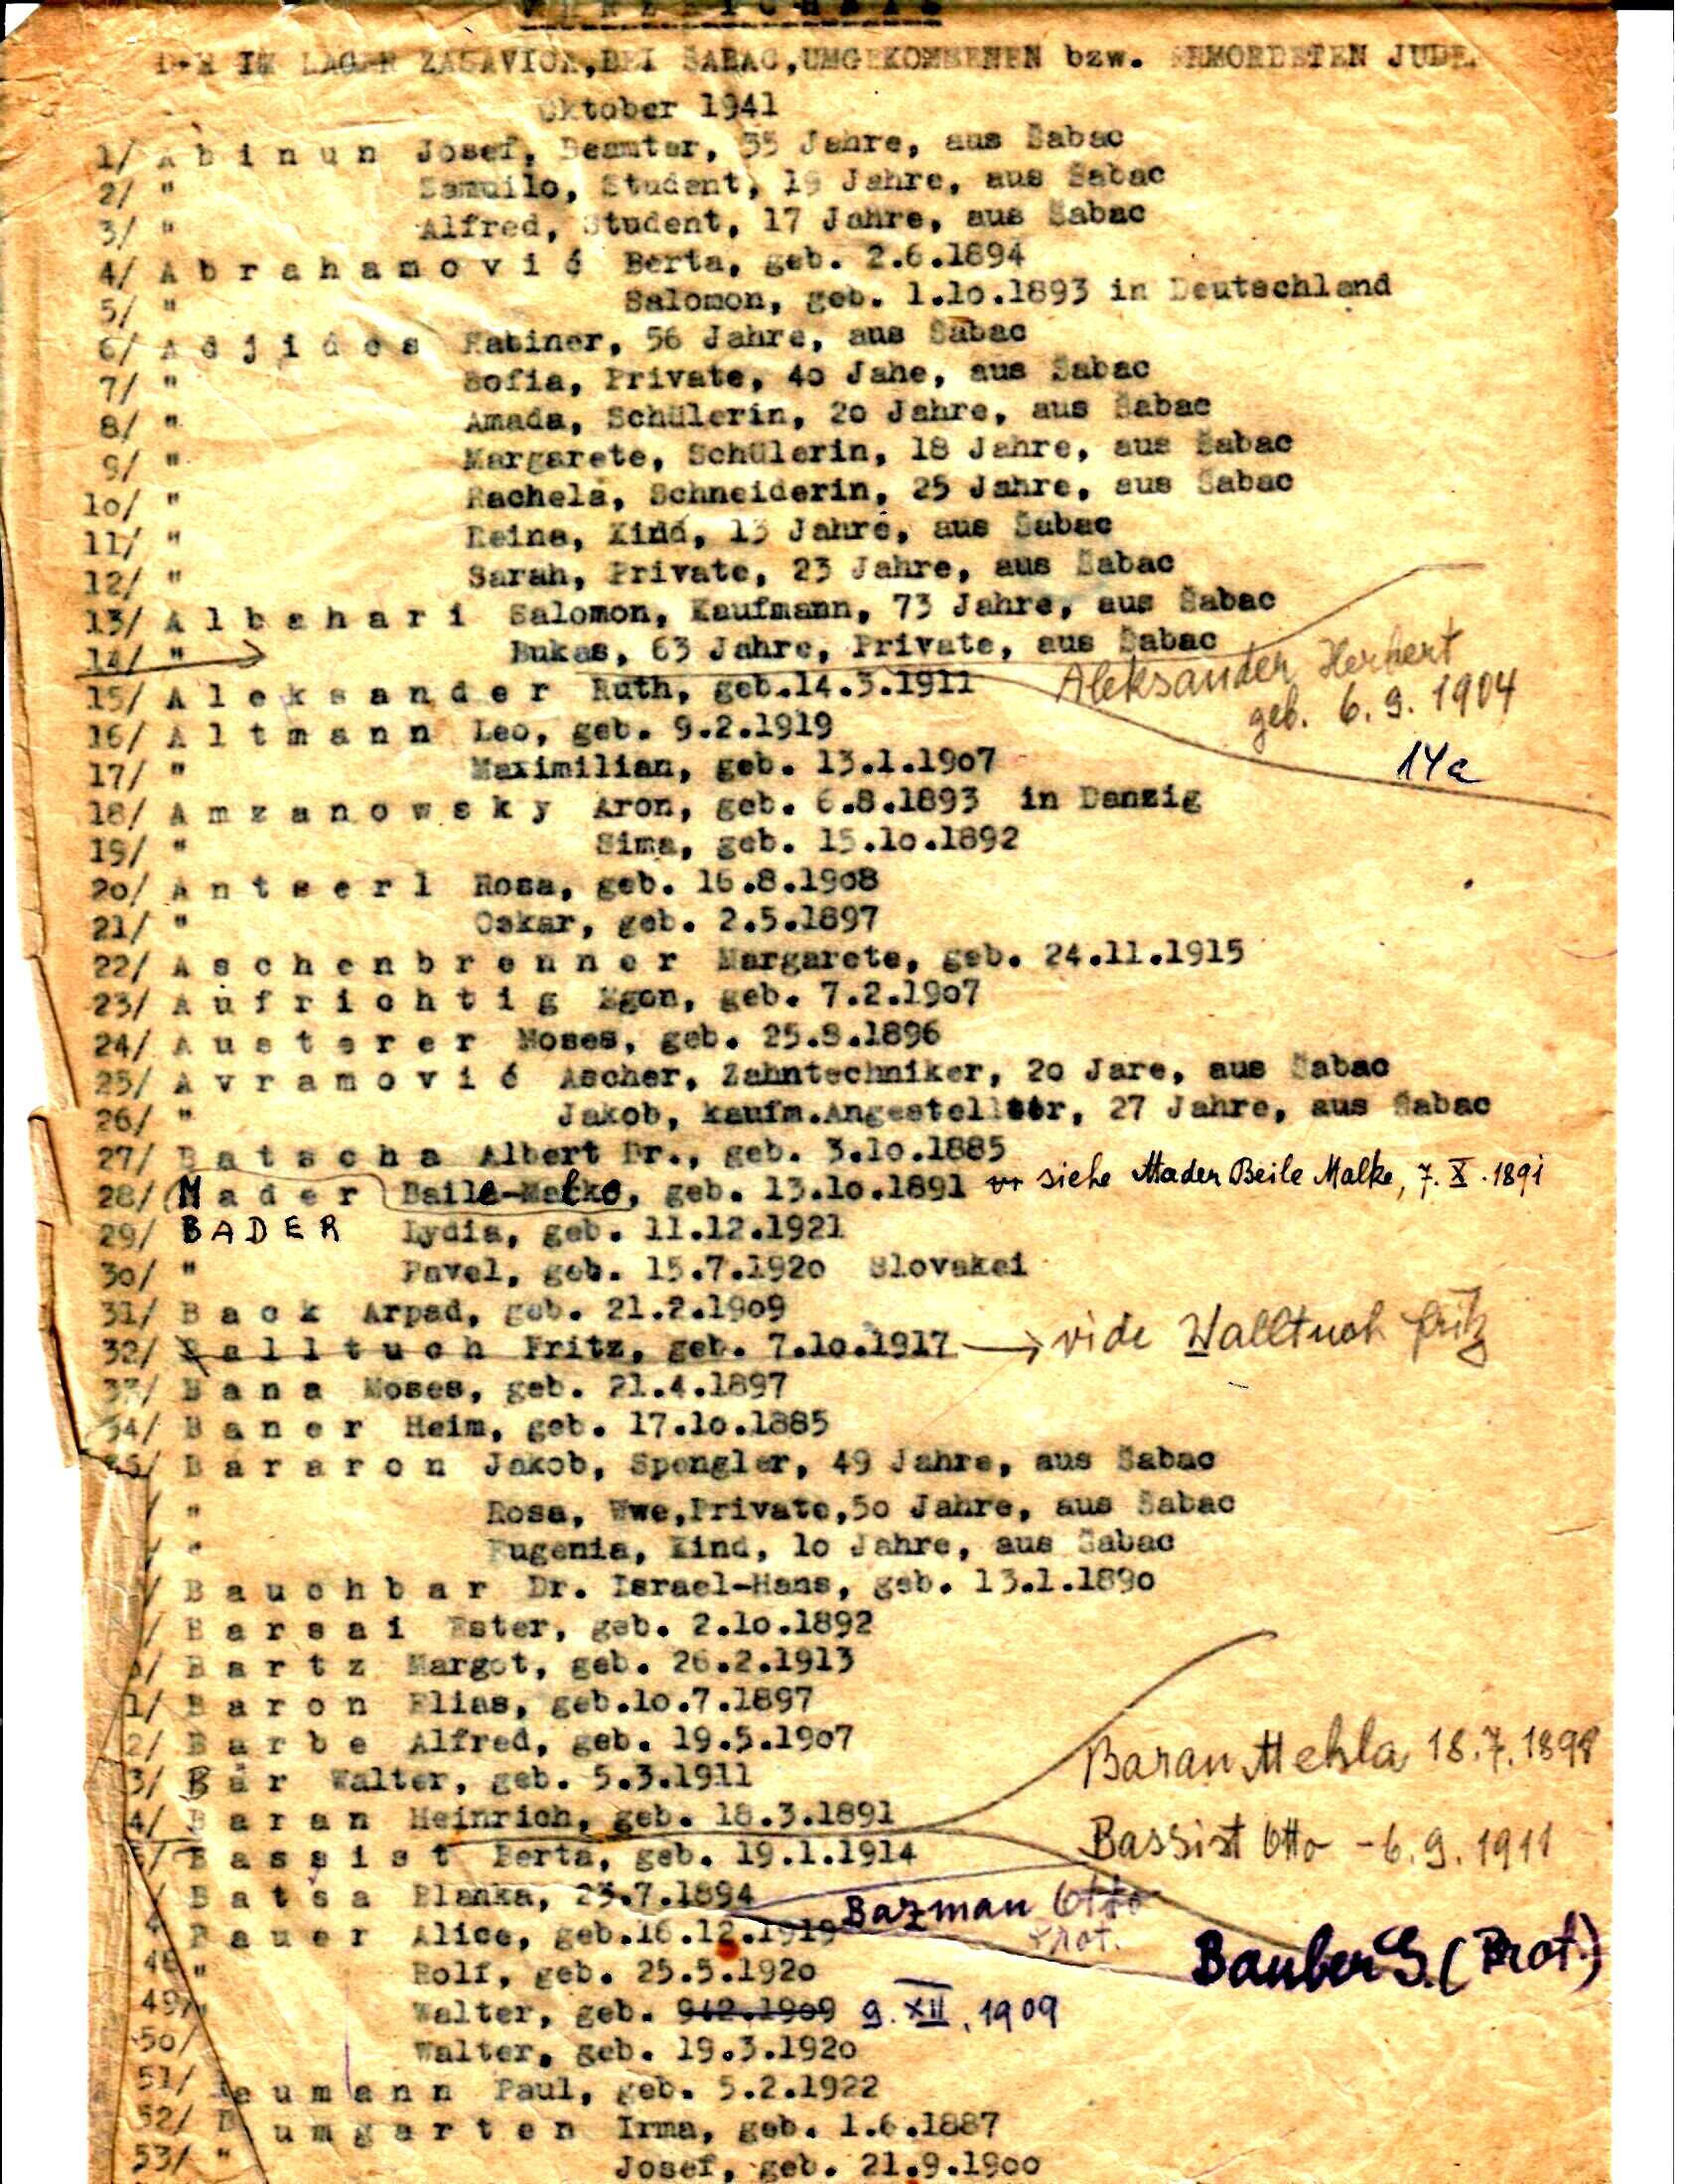 VERZEICHNIS
DER IM LAGER ZASAVICA, BEI ŠABAC, UMGEKOMMENEN bzw. ERMORDETEN JUDEN
Oktober 1941
1/ A b i n u n Josef, Beamter, 55 Jahre, aus Šabac
2/ " Samuilo, Student, 19 Jahre, aus Šabac
3/ " Alfred, Student, 17 Jahre, aus Šabac
4/ A b r a h a m o v i ć Berta, geb. 2.6.1894
5/ " Salomon, geb. 1.1o.1893 in Deutschland
6/ A d j i d e s Rabiner, 56 Jahre, aus Šabac
7/ " Sofia, Private, 4o Jahe, aus Šabac
8/ " Amada, Schülerin, 2o Jahre, aus Šabac
9/ " Margarete, Schülerin, 18 Jahre, aus Šabac
1o/ " Rachela, Schneiderin, 25 Jahre, aus Šabac
11/ " Reina, Kind, 13 Jahre, aus Šabac
12/ " Sarah, Private, 23 Jahre, aus Šabac
13/ A l b a h a r i Salomon, Kaufmann, 73 Jahre, aus Šabac
14/ " Bukas, 63 Jahre, Private, aus Šabac
Aleksander Herbert
geb. 6.9.1904
14a
15/ A l e k s a n d e r Ruth, geb.14.3.1911
16/ A l t m a n n Leo, geb. 9.2.1919
17/ " Maximilian, geb. 13.1.19o7
18/ A m z a n o w s k y Aron, geb. 6.8.1893 in Danzig
19/ " Sima, geb. 15.1o.1892
2o/ A n t s e r l Rosa, geb. 16.8.19o8
21/ " Oskar, geb. 2.5.1897
22/ A s c h e n b r e n n e r Margarete, geb. 24.11.1915
23/ A u f r i c h t i g Egon, geb. 7.2.19o7
24/ A u s t e r e r Moses, geb. 25.8.1896
25/ A v r a m o v i ć Ascher, Zahntechniker, 2o Jare, aus Šabac
26/ " Jakob, kaufm.Angestellter, 27 Jahre, aus Šabac
27/ B a t s c h a Albert Dr., geb. 3.1o.1885
28/ M a d e r Baile-Malke, geb. 13.1o.1891 siehe Mader Beile Malke, 7.X.1891
29/ BADER Lydia, geb. 11.12.1921
3o/ " Pavel, geb. 15.7.192o Slovakei
31/ B a c k Arpad, geb. 21.2.19o9
32/ B a l l t u c h Fritz, geb. 7.1o.1917 → vide Walltuch Fritz
33/ B a n a Moses, geb. 21.4.1897
34/ B a n e r Heim, geb. 17.1o.1885
35/ B a r a r o n Jakob, Spengler, 49 Jahre, aus Šabac
/ " Rosa, Wwe,Private,5o Jahre, aus Šabac
/ " Eugenia, Kind, 1o Jahre, aus Šabac
/ B a u c h b a r Dr. Israel-Hans, geb. 13.1.189o
/ B a r s a i Ester, geb. 2.1o.1892
/ B a r t z Margot, geb. 26.2.1913
1/ B a r o n Elias, geb.1o.7.1897
2/ B a r b e Alfred, geb. 19.5.19o7
3/ B ä r Walter, geb. 5.3.1911
Baran Mehla 18.7.1898
4/ B a r a n Heinrich, geb. 18.3.1891
Bassist Otto - 6.9.1911
5/ B a s s i s t Berta, geb. 19.1.1914
/ B a t s a Blanka, 23.7.1894
Bazman Otto
Prot.
Bauber S. (Prot.)
B a u e r Alice, geb.16.12.1919
48 " Rolf, geb. 25.5.192o
49/ " Walter, geb. 912.19o9 9.XII.1909
5o/ Walter, geb. 19.3.192o
51/ B a u m a n n Paul, geb. 5.2.1922
52/ B a u m g a r t e n Irma, geb. 1.6.1887
53/ " Josef, geb. 21.9.19oo